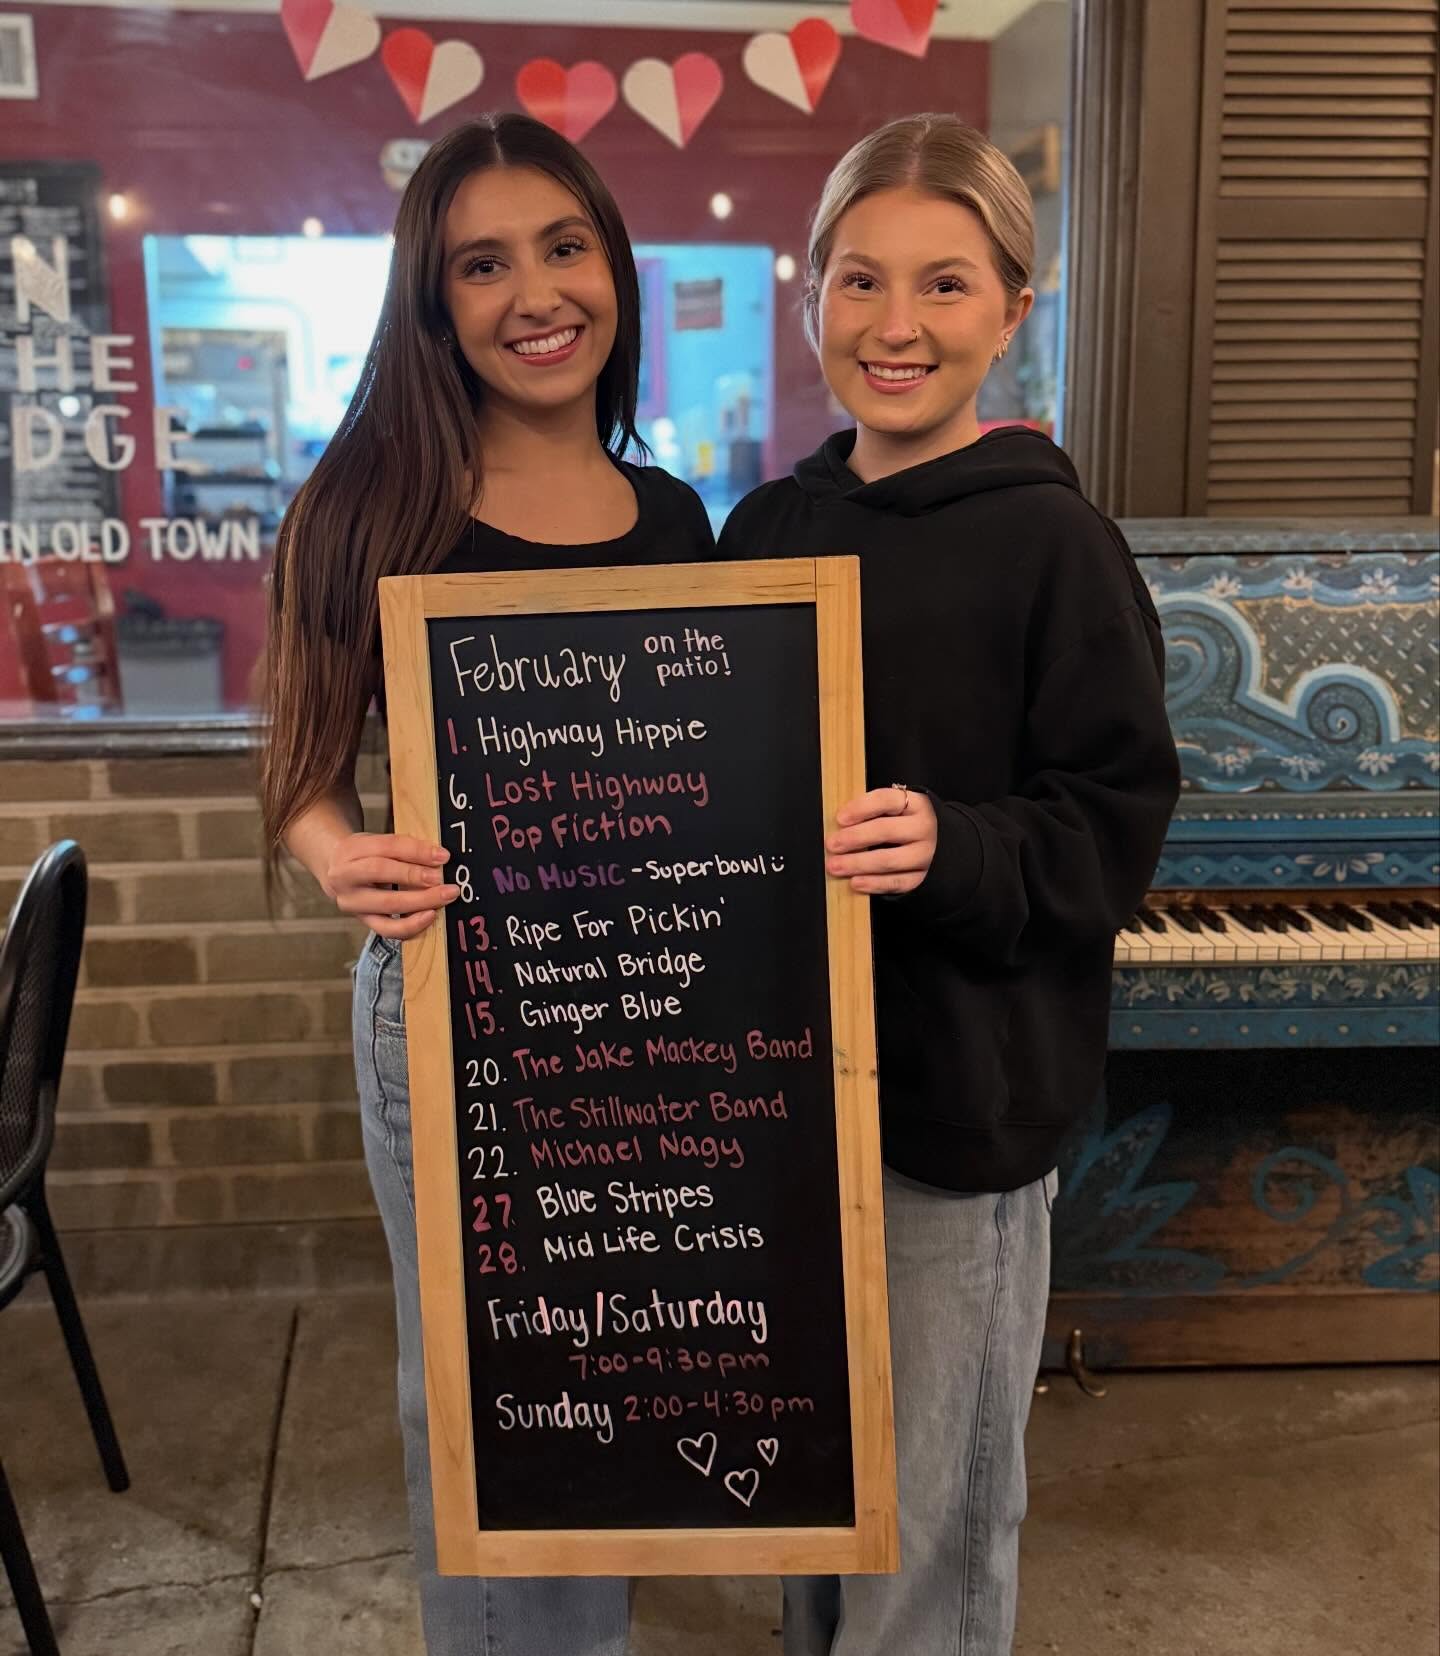 N
HE
DGE
IN OLD TOWN
February on the
patio!
1. Highway Hippie
6. Lost Highway
7. Pop Fiction
8. No Music - Superbowl
13. Ripe For Pickin'
14. Natural Bridge
15. Ginger Blue
20. The Jake Mackey Band
21. The Stillwater Band
22. Michael Nagy
27. Blue Stripes
28. Mid Life Crisis
Friday/Saturday
7:00-9:30pm
Sunday 2:00-4:30pm